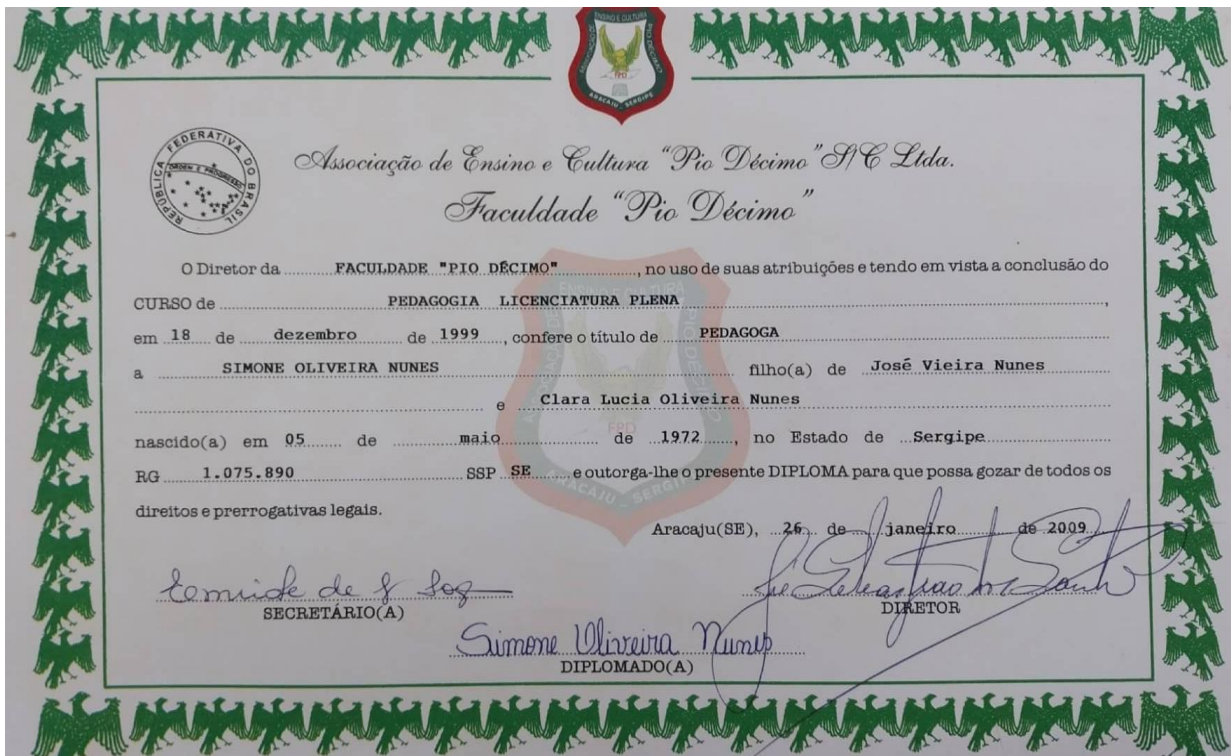 ENSINO E CULTURA
FPD
ARACAJU - SERGIPE
REPÚBLICA FEDERATIVA DO BRASIL
ORDEM E PROGRESSO
Associação de Ensino e Cultura "Pio Décimo" S/C Ltda.
Faculdade "Pio Décimo"
O Diretor da FACULDADE "PIO DÉCIMO", no uso de suas atribuições e tendo em vista a conclusão do
CURSO de PEDAGOGIA LICENCIATURA PLENA,
em 18 de dezembro de 1999, confere o título de PEDAGOGA
a SIMONE OLIVEIRA NUNES filho(a) de José Vieira Nunes
e Clara Lucia Oliveira Nunes
nascido(a) em 05 de maio de 1972, no Estado de Sergipe
RG 1.075.890 SSP SE e outorga-lhe o presente DIPLOMA para que possa gozar de todos os
direitos e prerrogativas legais.
Aracaju(SE), 26 de janeiro de 2009
SECRETÁRIO(A)
DIRETOR
Simone Oliveira Nunes
DIPLOMADO(A)